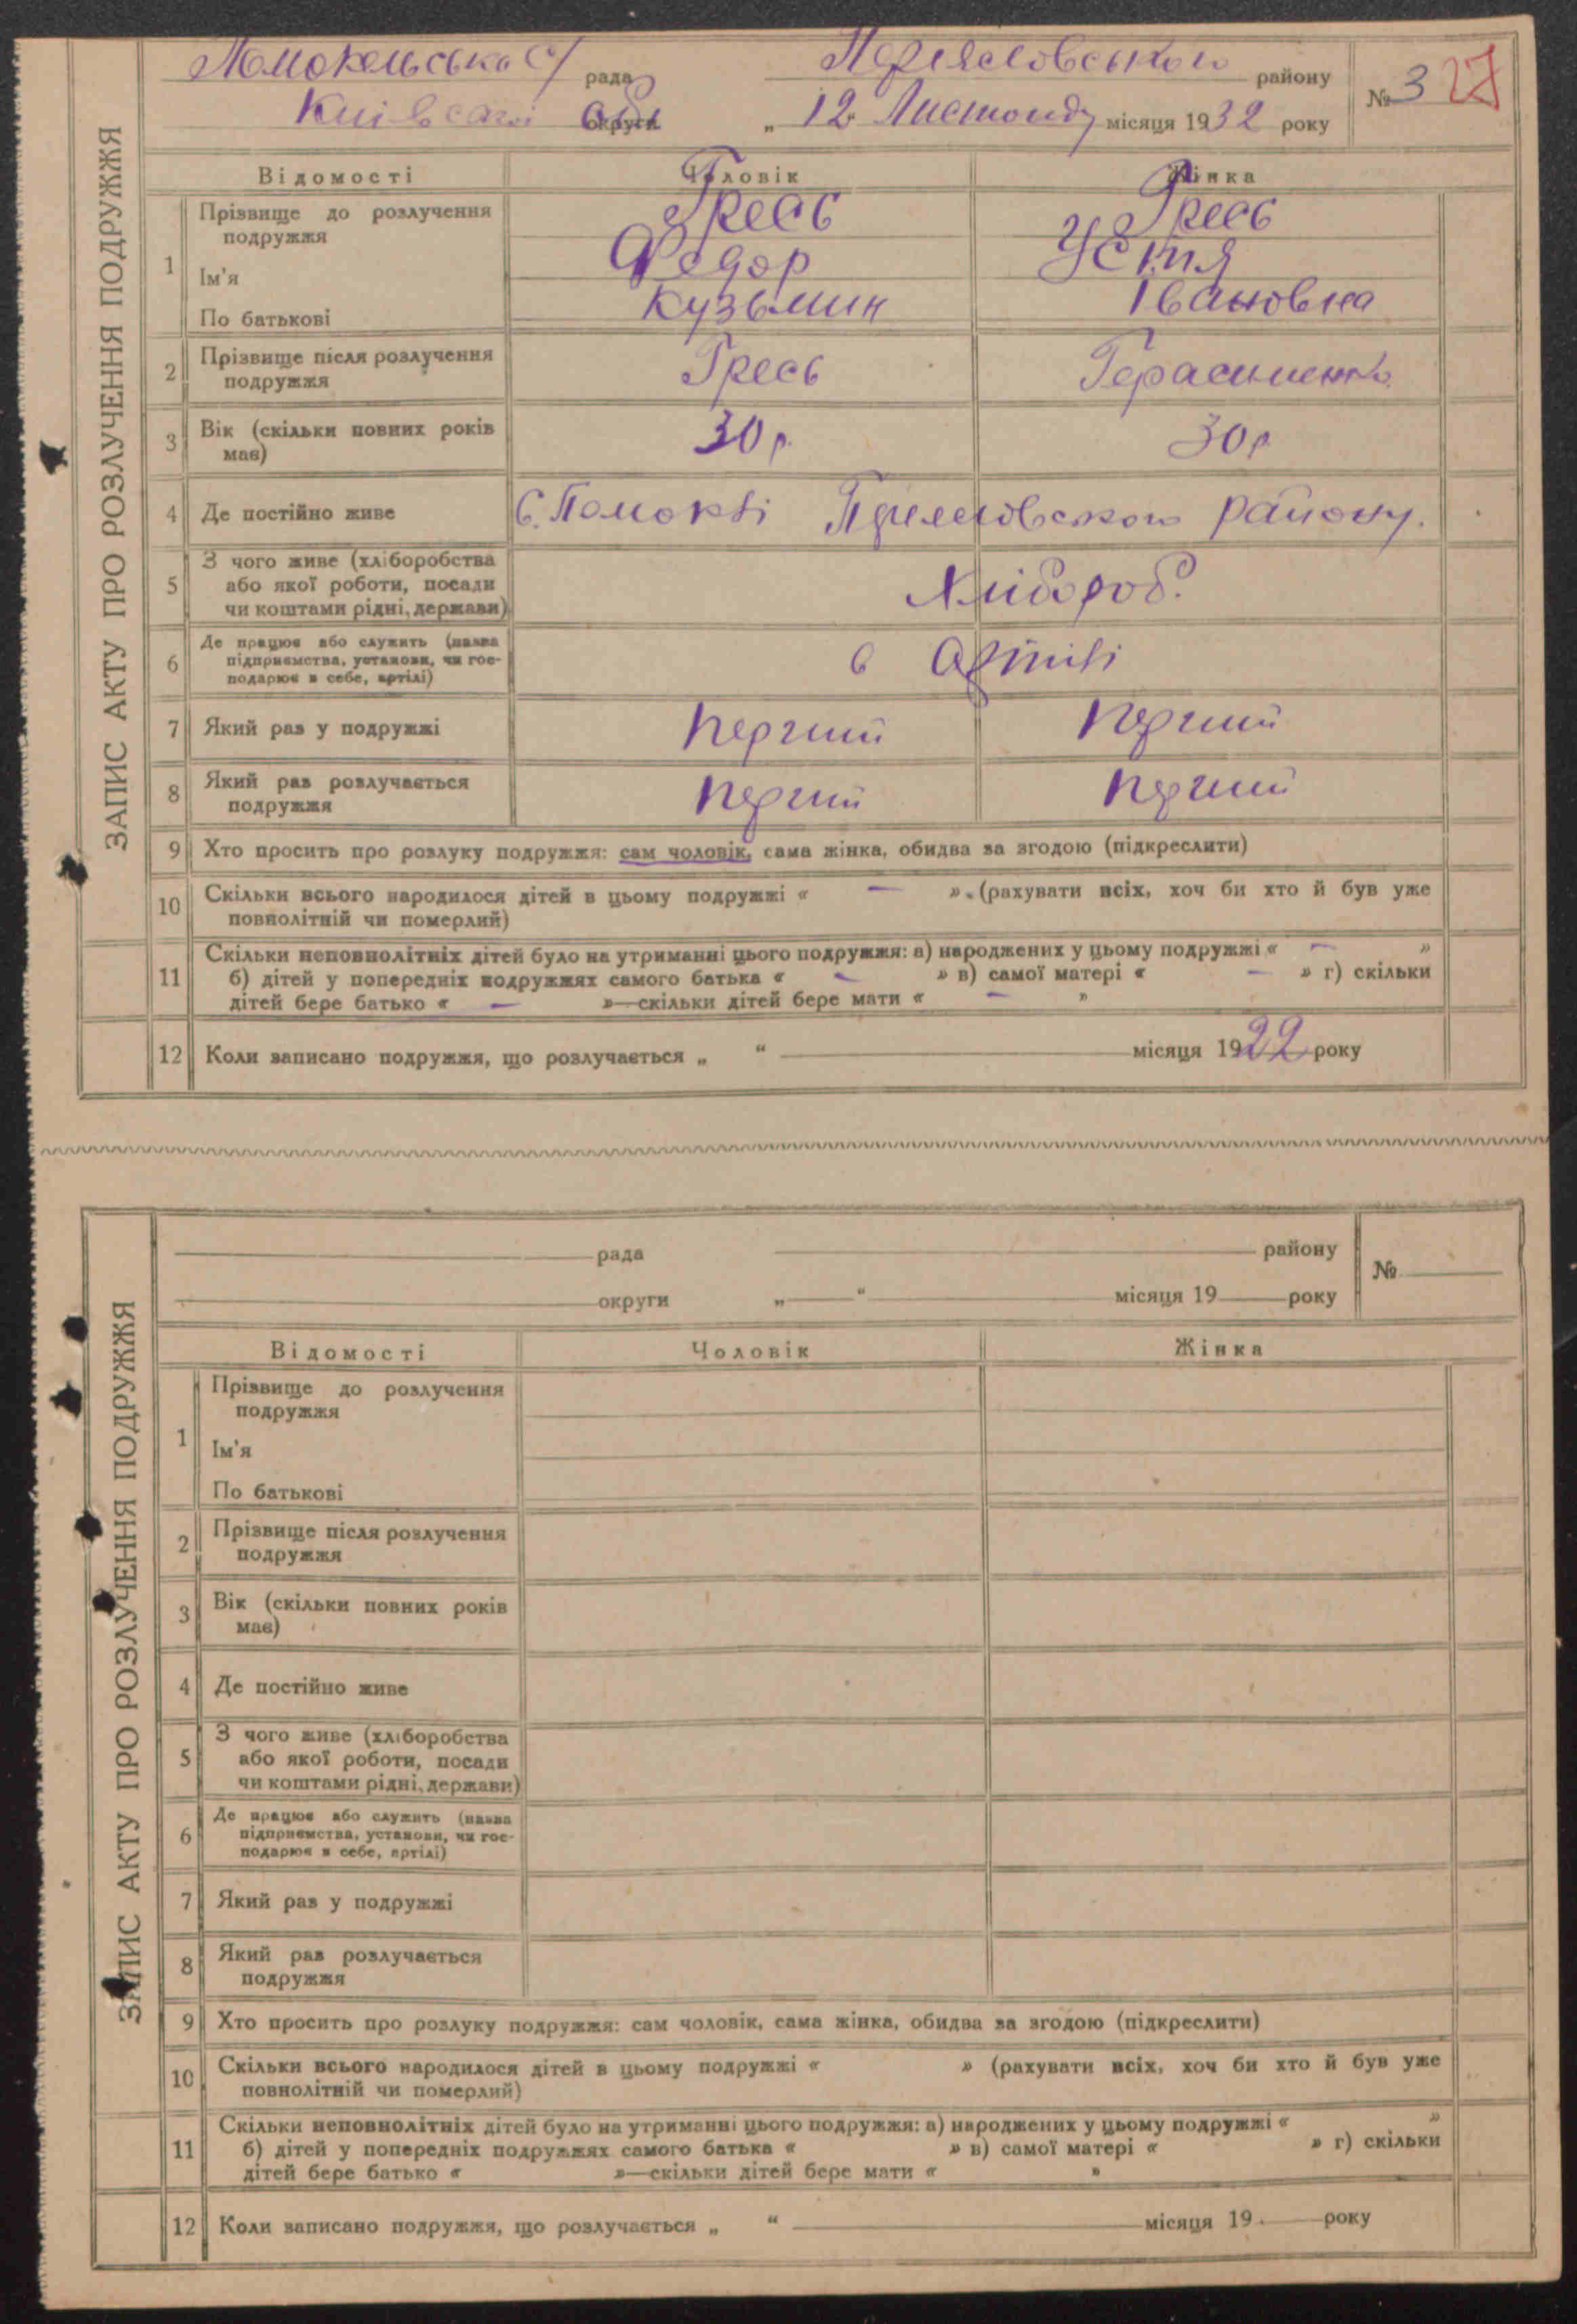 ЗАПИС АКТУ ПРО РОЗЛУЧЕННЯ ПОДРУЖЖЯ
Помокельська с/ рада Переясловського району № 3 27
Київської обл округи „ 12 Листопаду місяця 1932 року
Відомості Чоловік Жінка
1 Прізвище до розлучення подружжя Гресь Гресь
Ім'я Федор Устя
По батькові Кузьмин Івановна
2 Прізвище після розлучення
подружжя Гресь Герасименко
3 Вік (скільки повних років
має) 30 р. 30 р
4 Де постійно живе С. Помоклі Переясловського району.
5 З чого живе (хліборобства
або якої роботи, посади
чи коштами рідні, держави) Хлібороб.
6 Де працює або служить (назва
підприємства, установи, чи гос-
подарює в себе, артілі) в Артілі
7 Який раз у подружжі перший перший
8 Який раз розлучається
подружжя перший перший
9 Хто просить про розлуку подружжя: сам чоловік, сама жінка, обидва за згодою (підкреслити)
10 Скільки всього народилося дітей в цьому подружжі « — » (рахувати всіх, хоч би хто й був уже
повнолітній чи померлий)
11 Скільки неповнолітніх дітей було на утриманні цього подружжя: а) народжених у цьому подружжі « — »
б) дітей у попередніх подружжях самого батька « — » в) самої матері « — » г) скільки
дітей бере батько « — »—скільки дітей бере мати « — »
12 Коли записано подружжя, що розлучається „ “ місяця 1922 року
ЗАПИС АКТУ ПРО РОЗЛУЧЕННЯ ПОДРУЖЖЯ
рада району №
округи „ “ місяця 19 року
Відомості Чоловік Жінка
1 Прізвище до розлучення
подружжя
Ім'я
По батькові
2 Прізвище після розлучення
подружжя
3 Вік (скільки повних років
має)
4 Де постійно живе
5 З чого живе (хліборобства
або якої роботи, посади
чи коштами рідні, держави)
6 Де працює або служить (назва
підприємства, установи, чи гос-
подарює в себе, артілі)
7 Який раз у подружжі
8 Який раз розлучається
подружжя
9 Хто просить про розлуку подружжя: сам чоловік, сама жінка, обидва за згодою (підкреслити)
10 Скільки всього народилося дітей в цьому подружжі « » (рахувати всіх, хоч би хто й був уже
повнолітній чи померлий)
11 Скільки неповнолітніх дітей було на утриманні цього подружжя: а) народжених у цьому подружжі « »
б) дітей у попередніх подружжях самого батька « » в) самої матері « » г) скільки
дітей бере батько « »—скільки дітей бере мати « »
12 Коли записано подружжя, що розлучається „ “ місяця 19 року